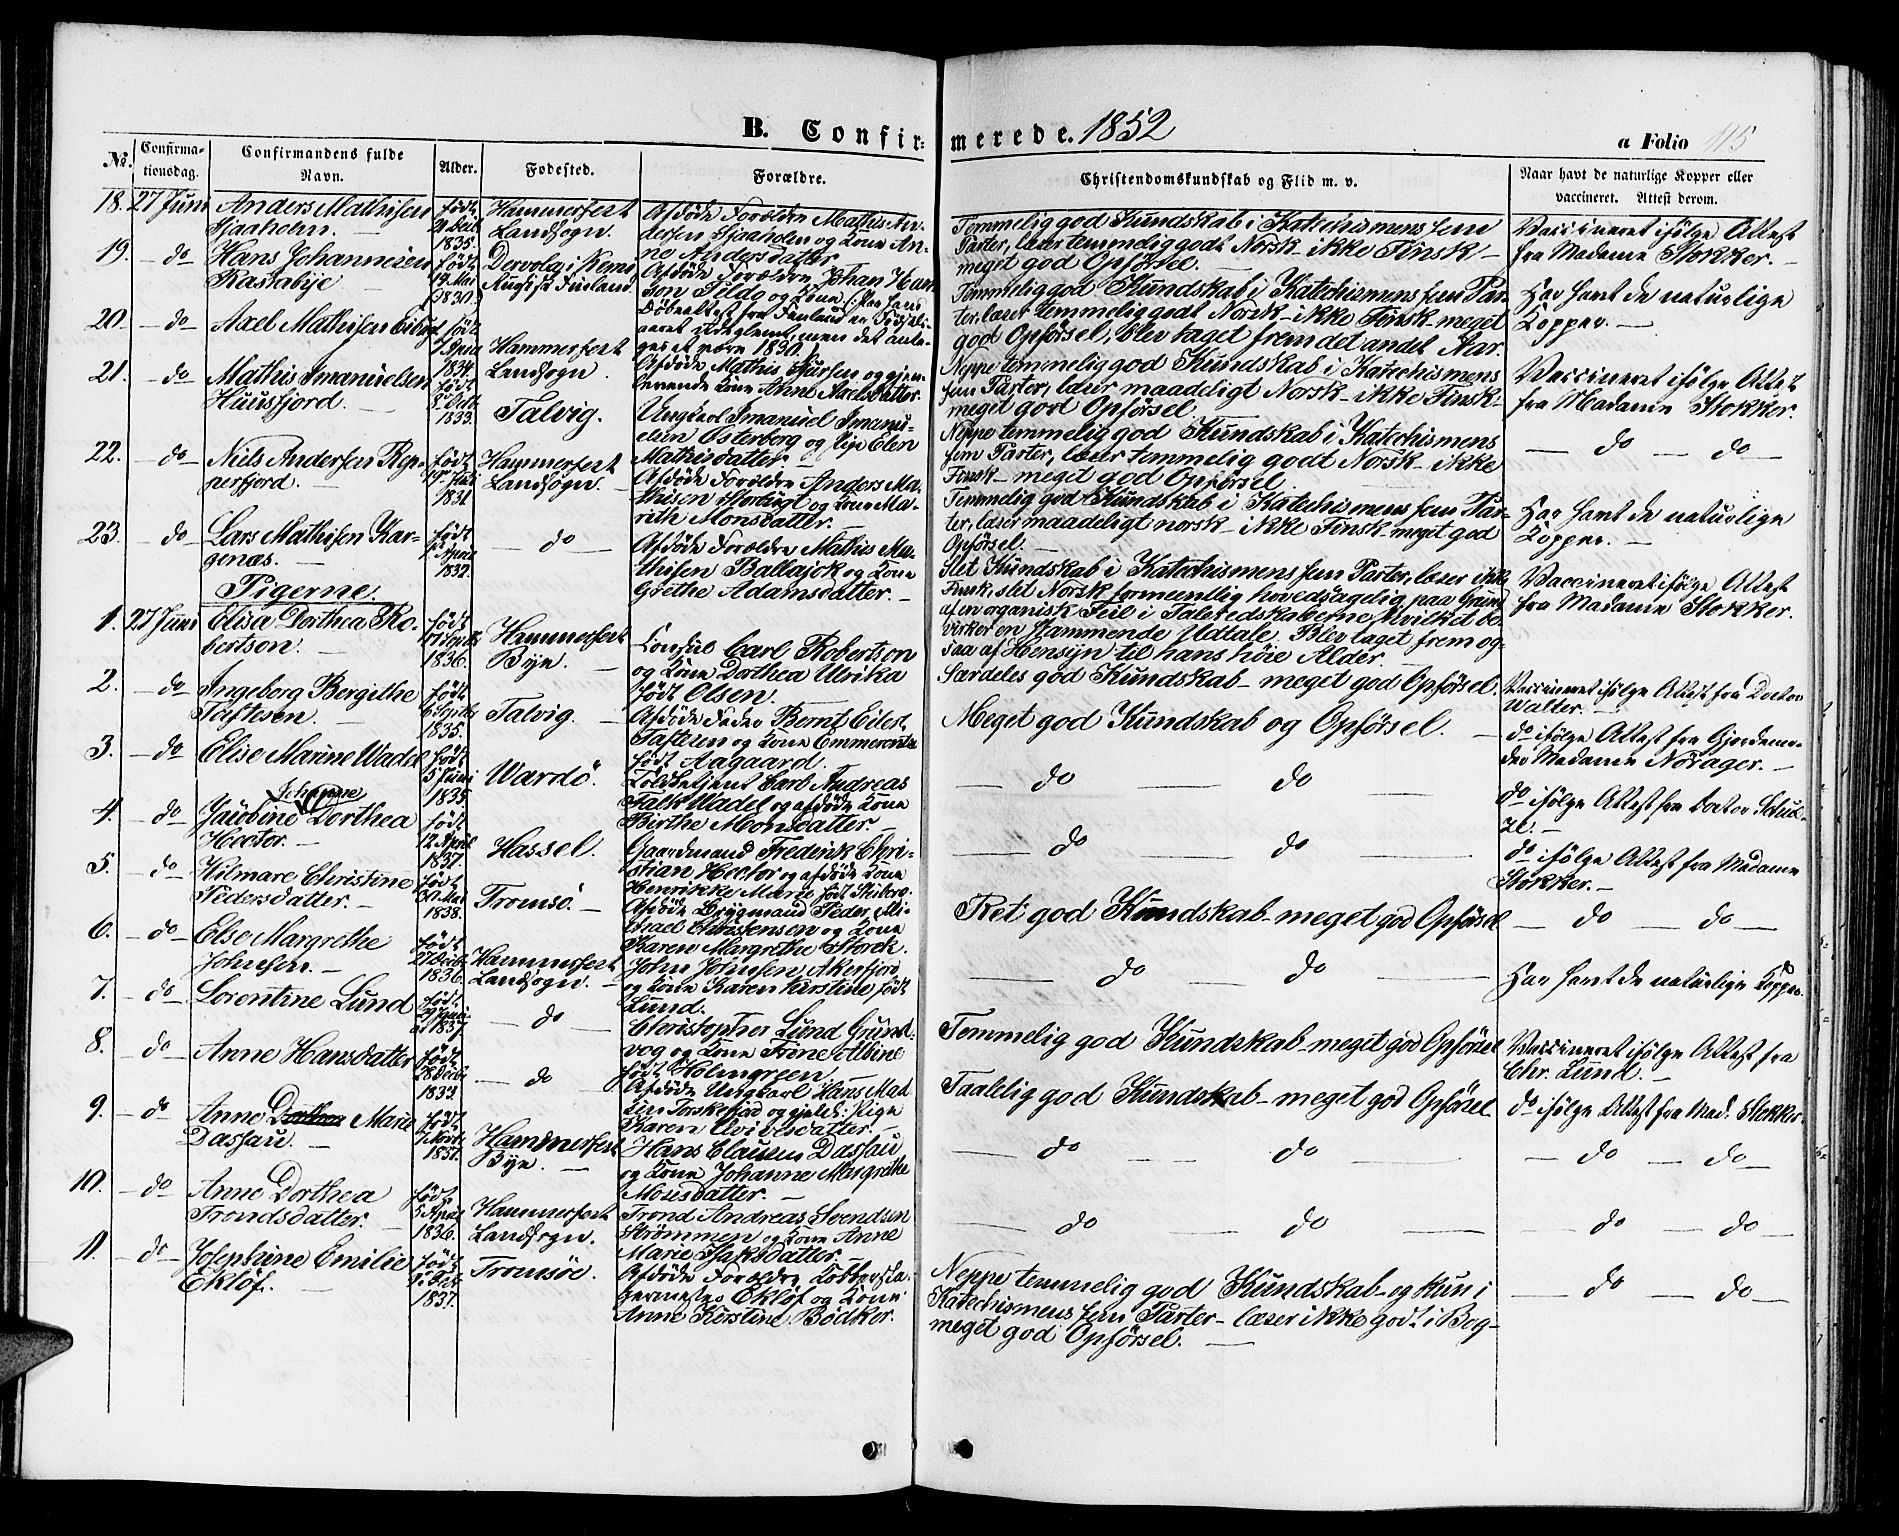 B. Confir-
merede. 1852
a Folio 115
No.
Confirma-
tionsdag.
Confirmandens fulde
Navn.
Alder.
Fødested.
Forældre.
Christendomskundskab og Flid m. v.
Naar havt de naturlige Kopper eller
vaccineret. Attest derom.
18. 27 Juni Anders Mathisen
Sjaaholm. —
født
Decb
1835.
Hammerfest
Landsogn.
Afdøde Forældre Mathis An-
dersen Sjaaholm og Kone An-
ne Andersdatter
Temmelig god Kundskab i Katechismens fem
Parter, læser temmelig godt Norsk – ikke Finsk –
meget god Opførsel. —
Vaccineret ifølge Attest
fra Madame Stokker. —
19. — do — Hans Johannesen
Rastabye —
født
19 Mai
1830.
i Kemi,
Finland
Afdøde Forældre Johan Han-
sen og Kone (: Paa hans
Døbeattest fra Finland er Fødsels-
aaret glemt, men det anta-
ges at være 1830.
Temmelig god Kundskab i Katechismens fem Par-
ter, læser temmelig godt Norsk – ikke Finsk – meget
god Opførsel, blev taget frem det andet Aar.
Har havt de naturlige
Kopper. —
20. — do — Axel Mathisen
født
April
1834.
Hammerfest
Landsogn.
Afdøde Mathis Larsen og gjen-
levende Kone Anne Axelsdatter.
Neppe temmelig god Kundskab i Katechismens
fem Parter, læser maadeligt Norsk – ikke Finsk –
meget god Opførsel
Vaccineret ifølge Attest
fra Madame Stokker.
21. — do — Mathis Imanuelsen
Huusfjord. —
født
8 Octb
1833.
Talvig.
Ungkarl Imanuel Imanu-
elsen Østerberg og Pige Elen
Mathisdatter —
Neppe temmelig god Kundskab i Katechismens
fem Parter, læser temmelig godt Norsk – ikke
Finsk – meget god Opførsel.
— do — do —
22. — do — Niels Andersen Rep-
perfjord. —
født
1831
Hammerfest
Landsogn. —
Afdøde Forældre Anders Ma-
thisen og Kone Ma-
rith Monsdatter. —
Temmelig god Kundskab i Katechismens fem Par-
ter, læser maadeligt norsk – ikke Finsk – meget god
Opførsel. —
Har havt de naturlige
Kopper. —
23. — do — Lars Mathisen Kar-
genæs. —
født
April
1832.
— do —
Afdøde Forældre Mathis Ma-
thisen Ballajok og Kone
Grethe Adamsdatter. —
Slet Kundskab i Katechismens fem Parter, læser ikke
Finsk, slet Norsk formeentlig hovedsagelig paa Grund
af en organisk Feil i Taleredskaberne, hvilket be-
virker en stammende Udtale. Blev taget frem og-
saa af Hensyn til hans høie Alder. —
Vaccineret ifølge Attest
fra Madame Stokker.
Pigerne.
1. 27 Juni Elisa Dorthea Ro-
bertson. —
født
1836.
Hammerfest
Bye. —
Consul Carl Robertson
og Kone Dorthea Ulrika
født Olsen. —
Særdeles god Kundskab – meget god Opførsel.
Vaccineret ifølge Attest fra Doctor
Walter. —
2. — do — Ingeborg Bergithe
Taftesen. —
født
6 Septb
1835.
Talvig. —
Afdøde Fader Bernt Eilert
Taftesen og Kone Emmerentse
født Aagaard.
Meget god Kundskab og Opførsel. —
do ifølge Attest fra Gjordemo-
der Madame Norager. —
3. — do — Elise Marine Wadel
født
5 Juni
1835.
Wardø.
Toldbetjent Carl Andreas
Falk Wadel og afdøde Kone
Birthe Monsdatter. —
— do — do —
do ifølge Attest fra Doctor Schul-
ze. —
4. — do —
Johanne
Jacobine Dorthea
Hector. —
født
12 April
1837.
Hassel.
Gaardmand Frederik Chri-
stian Hector og afdøde Kone
Henrikke Marie født
— do — do —
do ifølge Attest fra Madame
Stokker. —
5. — do — Hilmare Christine
Pedersdatter. —
født
30 Mai
1838.
Tromsø. —
Afdøde Brygmand Peder Mi-
chael Christensen og Kone
Karen Margrethe Storck.
Ret god Kundskab – meget god Opførsel
— do — do —
6. — do — Else Margrethe
Johnsen. —
født
27 Decb
1836.
Hammerfest
Landsogn. —
John Johnsen Akerfjord
og Kone Karen Kirstine født
Lund.
— do — do —
Har havt de naturlige Kopper.
7. — do — Lorentine Lund
født
29 Juni
1837
— do —
Christopher Lund Grund-
vog og Kone Trine Albine
født Holmgreen. —
Temmelig god Kundskab – meget god Opførsel
Vaccineret ifølge Attest fra
Chr. Lund. —
8. — do — Anne Hansdatter
født
28 Decb
1833
— do —
Afdøde Ungkarl Hans Mad-
sen Torskefjord og gjenl: Pige
Karen Iversdatter. —
Taalelig god Kundskab – meget god Opførsel
do ifølge Attest fra Mad. Stokker
9. — do — Anne Dorthea Marie
Dassau. —
født
7 Novb
1837.
Hammerfest
Bye. —
Hans Clausen Dassau
og Kone Johanne Margrethe
Mosesdatter. —
— do — do —
— do — do —
10. — do — Anne Dorthea
Trondsdatter. —
født
5 April
1836.
Hammerfest
Landsogn.
Trond Andreas Svendsen
Strømmen og Kone Anne
Marie Isaksdatter. —
— do — do —
— do — do —
11. — do — Josephine Emilie
Ekløf. —
født
Feb
1837.
Tromsøe.
Afdøde Forældre Kobbersla-
germester Ekløf og Kone
Anne Kirstine Bødker.
Neppe temmelig god Kundskab – og kun i
Katechismens fem Parter – læser ikke godt i Bog –
meget god Opførsel. —
— do — do —